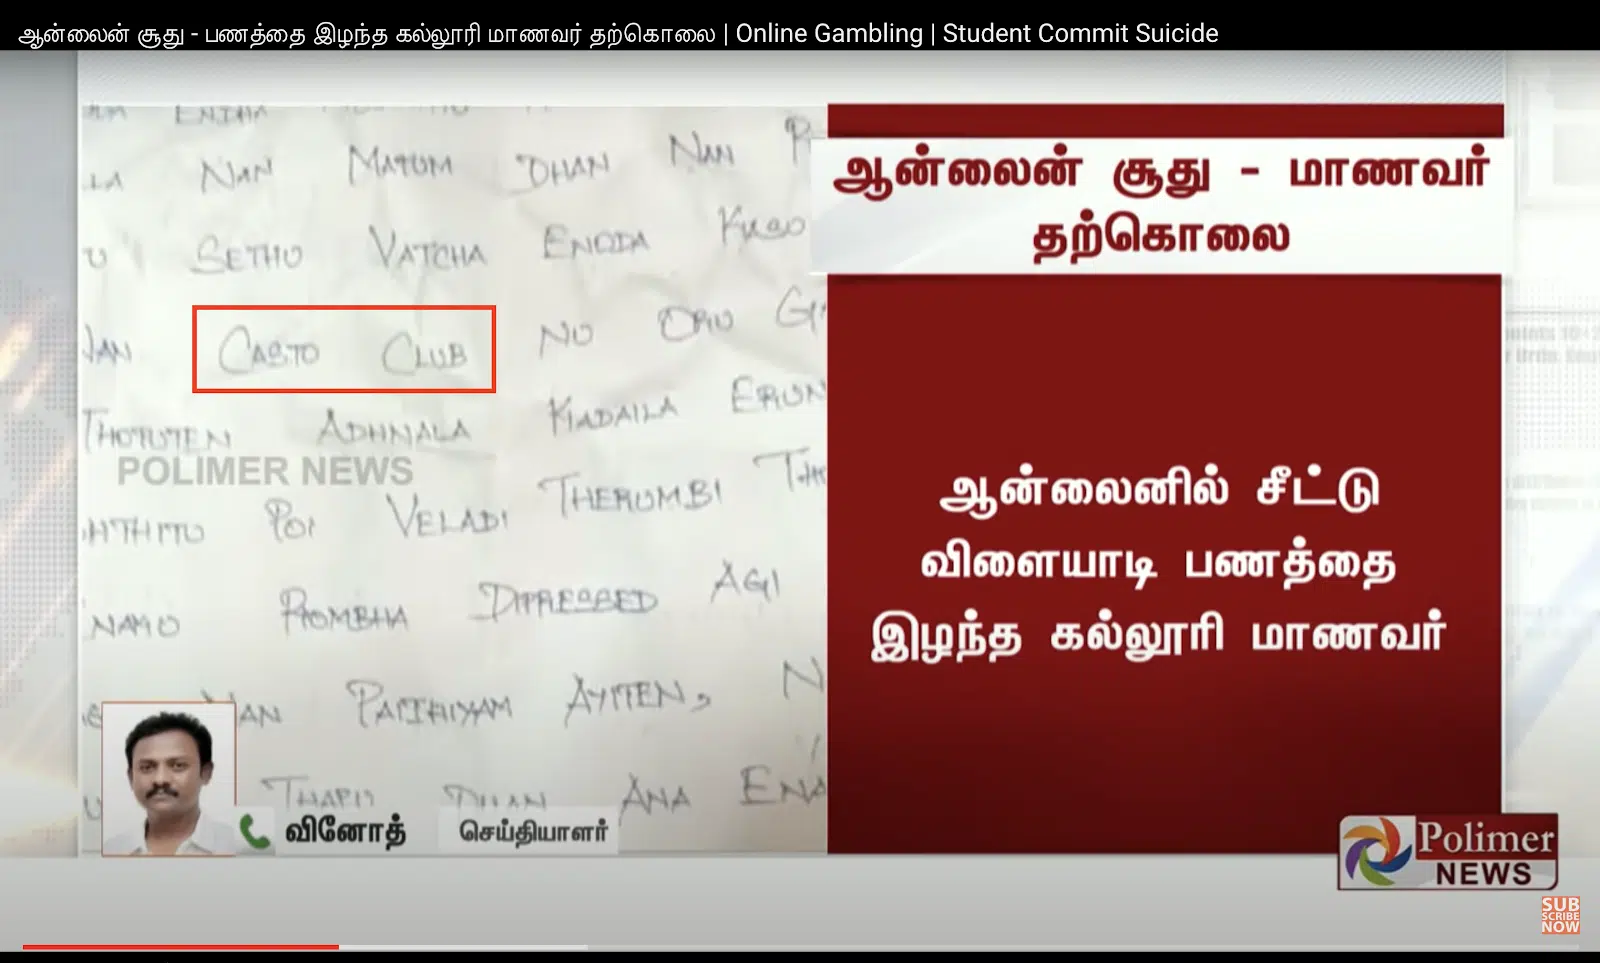 ஆன்லைன் சூது - பணத்தை இழந்த கல்லூரி மாணவர் தற்கொலை | Online Gambling | Student Commit Suicide
ENIHA
LA NAN MATUM DHAN NAN
U SETHU VATCHA ENODA
NAN CASTO CLUB NU ORU
THOTUTEN ADHNALA KIADAILA ERUN
POLIMER NEWS
POI VELADI THERUMBI
ROMBHA DIPRESSED AGI
NAN PAITHIYAM AYITEN,
DHAN ANA ENA
ஆன்லைன் சூது - மாணவர்
தற்கொலை
ஆன்லைனில் சீட்டு
விளையாடி பணத்தை
இழந்த கல்லூரி மாணவர்
வினோத் செய்தியாளர்
Polimer
NEWS
SUB
SCRIBE
NOW